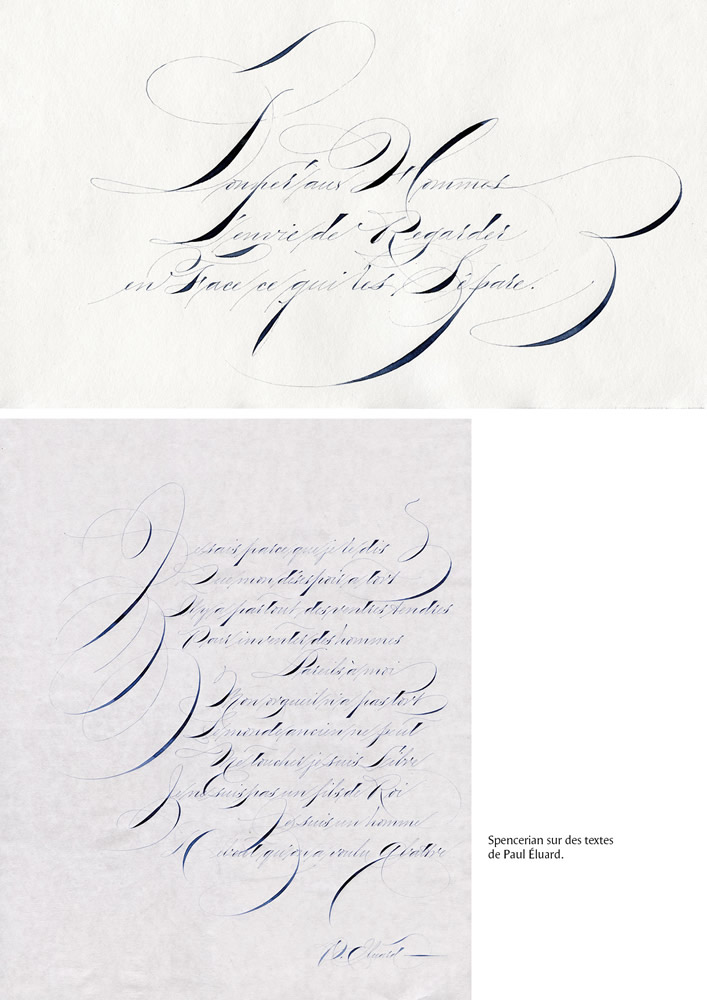 aux Hommes
L'envie de Regarder
en Face ce qui les Sépare.
Je sais parce que je le dis
Que mon désespoir a tort
Il y a partout des ventres tendres
Pour inventer des hommes
Pareils à moi
Mon orgueil n'a pas tort
Le monde ancien ne peut
Me toucher je suis Libre
Je ne suis pas un fils de Roi
Je suis un homme
Debout qu'on a voulu Abattre
P. Eluard
Spencerian sur des textes
de Paul Éluard.